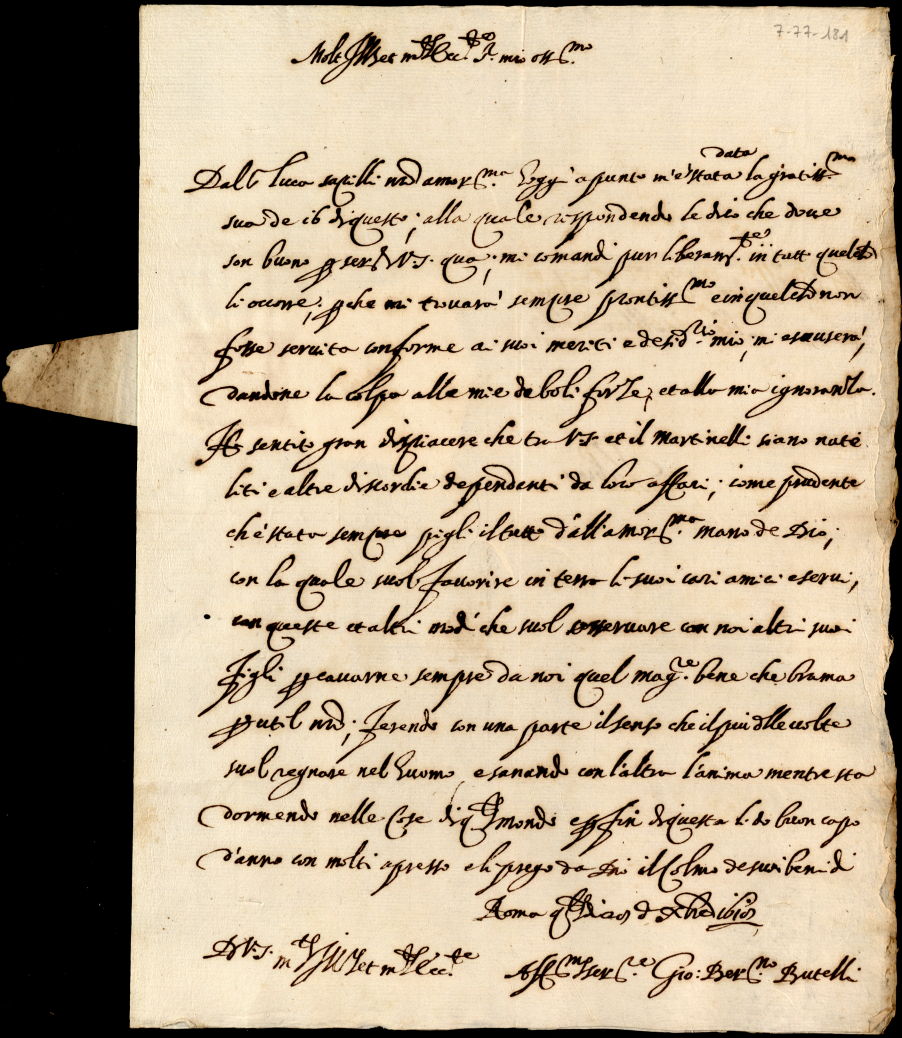 7-77-181
Molt Ill.re et m.to Ecc.te S.r mio oss.mo
Dal S.r Luca nro amor.mo hoggi apunto m'è stata data la gratiss.ma
sua de 16 di questo; alla quale rispondendo le dico che dove
son buono p ser. V.S. qua; mi comandi pur liberam.te in tutt quel ch
li occorre; p che mi trovarà sempre prontiss.mo e in quel ch non
fosse servita conforme ai suoi meriti e desid.rio mio, mi escuserà,
dandone la colpa alle mie deboli forze, et alla mia ignoranza.
Ho sentito gran dispiacere che tra V.S. et il Martinelli siano nate
liti e altre discordie dependenti da loro affari; come prudente
ch'è stata sempre pigli il tutto dall'amor.ma mano de Dio;
con la quale suol favorire in terra li suoi cari amici e servi,
con queste et altri modi che suol osservare con noi altri suoi
figli p cavarne sempre da noi quel mag.re bene che brama
p util nro; ferendo con una parte il senso che il più delle volte
suol regnare nel huomo, e sanando con l'altra l'anima mentre sta
dormendo nelle cose di q.to mondo e p fin di questa li do buon capo
d'anno con molti apresso e li prego da Dio il colmo de suoi beni di
Roma q.to di
D V.S. m.to Ill.re et m.to Ecc.te
Aff.mo Ser.re Gio: Ber.no Butelli